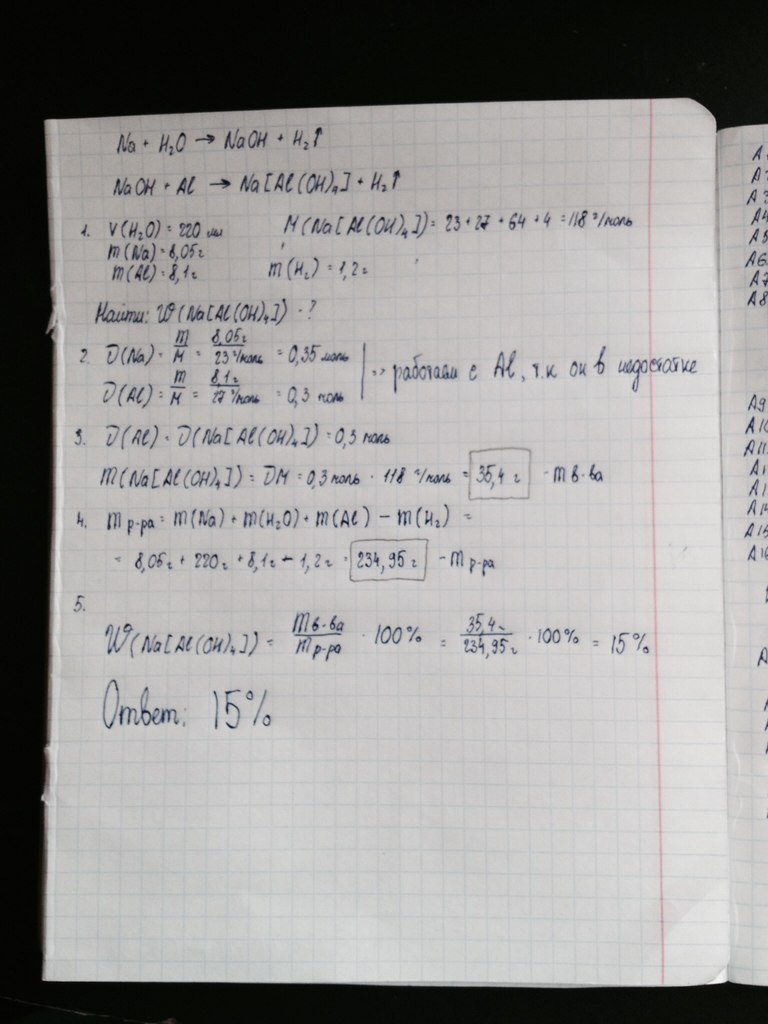 Na + H₂O → NaOH + H₂↑
NaOH + Al → Na[Al(OH)₄] + H₂↑
1. V(H₂O) = 220 мл M(Na[Al(OH)₄]) = 23 + 27 + 64 + 4 = 118 г/моль
m(Na) = 8,05 г
m(Al) = 8,1 г m(H₂) = 1,2 г
Найти: W(Na[Al(OH)₄]) - ?
2. ν(Na) = m/M = 8,05г/23 г/моль = 0,35 моль
ν(Al) = m/M = 8,1г/27 г/моль = 0,3 моль
=> работаем с Al, т.к он в недостатке
3. ν(Al) = ν(Na[Al(OH)₄]) = 0,3 моль
m(Na[Al(OH)₄]) = νM = 0,3 моль · 118 г/моль = 35,4 г - m в-ва
4. m р-ра = m(Na) + m(H₂O) + m(Al) - m(H₂) =
= 8,05г + 220г + 8,1г - 1,2г = 234,95 г - m р-ра
5.
W(Na[Al(OH)₄]) = m в-ва/m р-ра · 100% = 35,4г/234,95г · 100% = 15%
Ответ: 15%
А4
А5
А6
А7
А8
А9